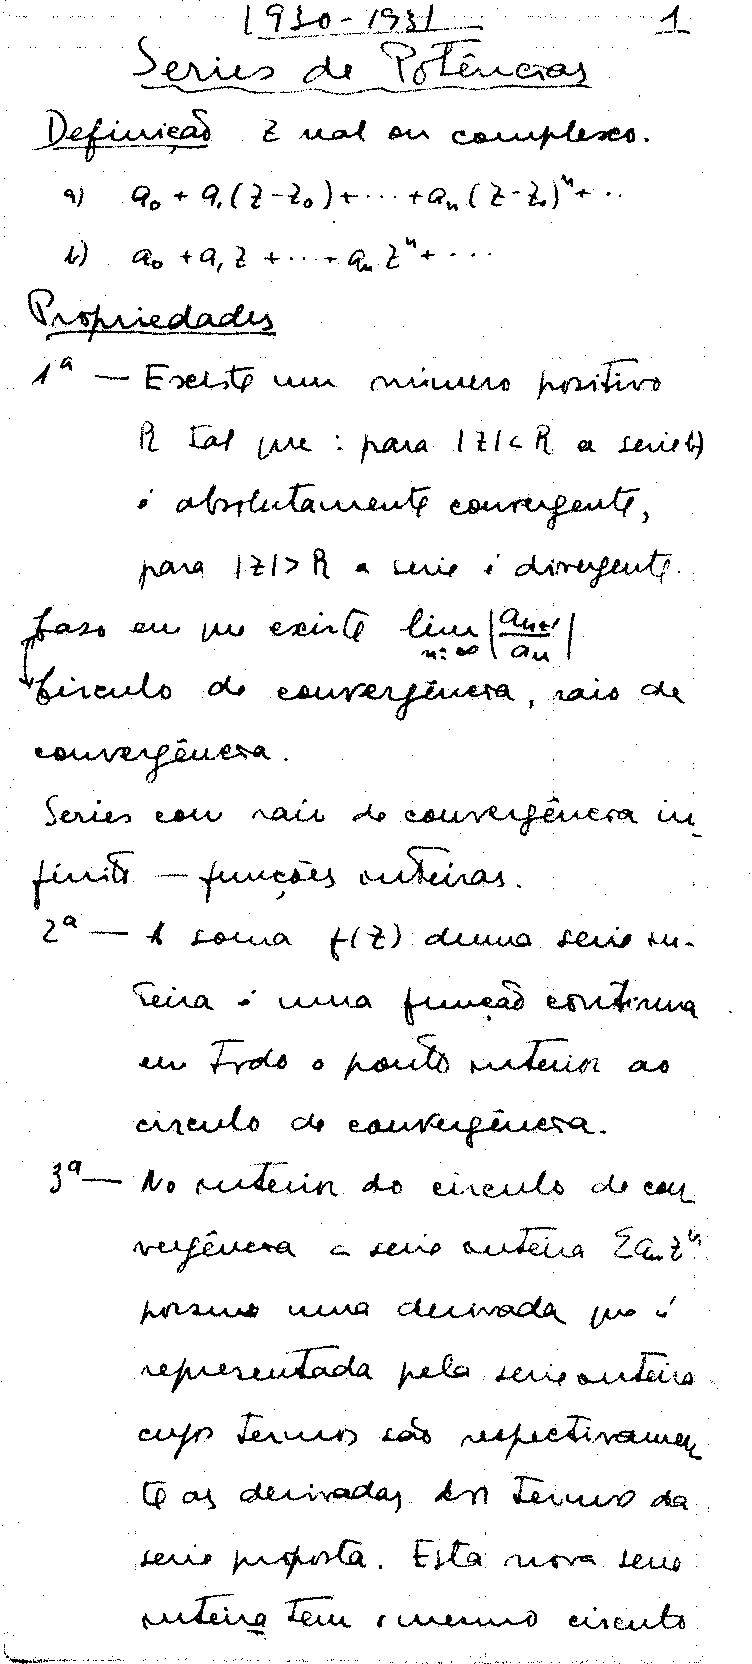 1930-1931 1
Series de Potências
Definição z real ou complexo.
a) a₀ + a₁(z-z₀)+···+aₙ(z-z₀)ⁿ+··
b) a₀ + a₁z +···+ aₙzⁿ+···
Propriedades
1ª — Existe um número positivo
R tal que : para |z|<R a serie b)
é absolutamente convergente,
para |z|>R a serie é divergente.
Caso em que existe lim n=∞ |aₙ₊₁/aₙ|
Circulo de convergência, raio de
convergência.
Series com raio de convergência in-
finito — funções inteiras.
2ª — A soma f(z) duma serie in-
teira é uma função continua
em todo o ponto interior ao
circulo de convergência.
3ª — No interior do circulo de con-
vergência a serie inteira Σaₙzⁿ
possue uma derivada que é
representada pela serie inteira
cujos termos são respectivamen-
te as derivadas dos termos da
serie proposta. Esta nova serie
inteira tem o mesmo circulo